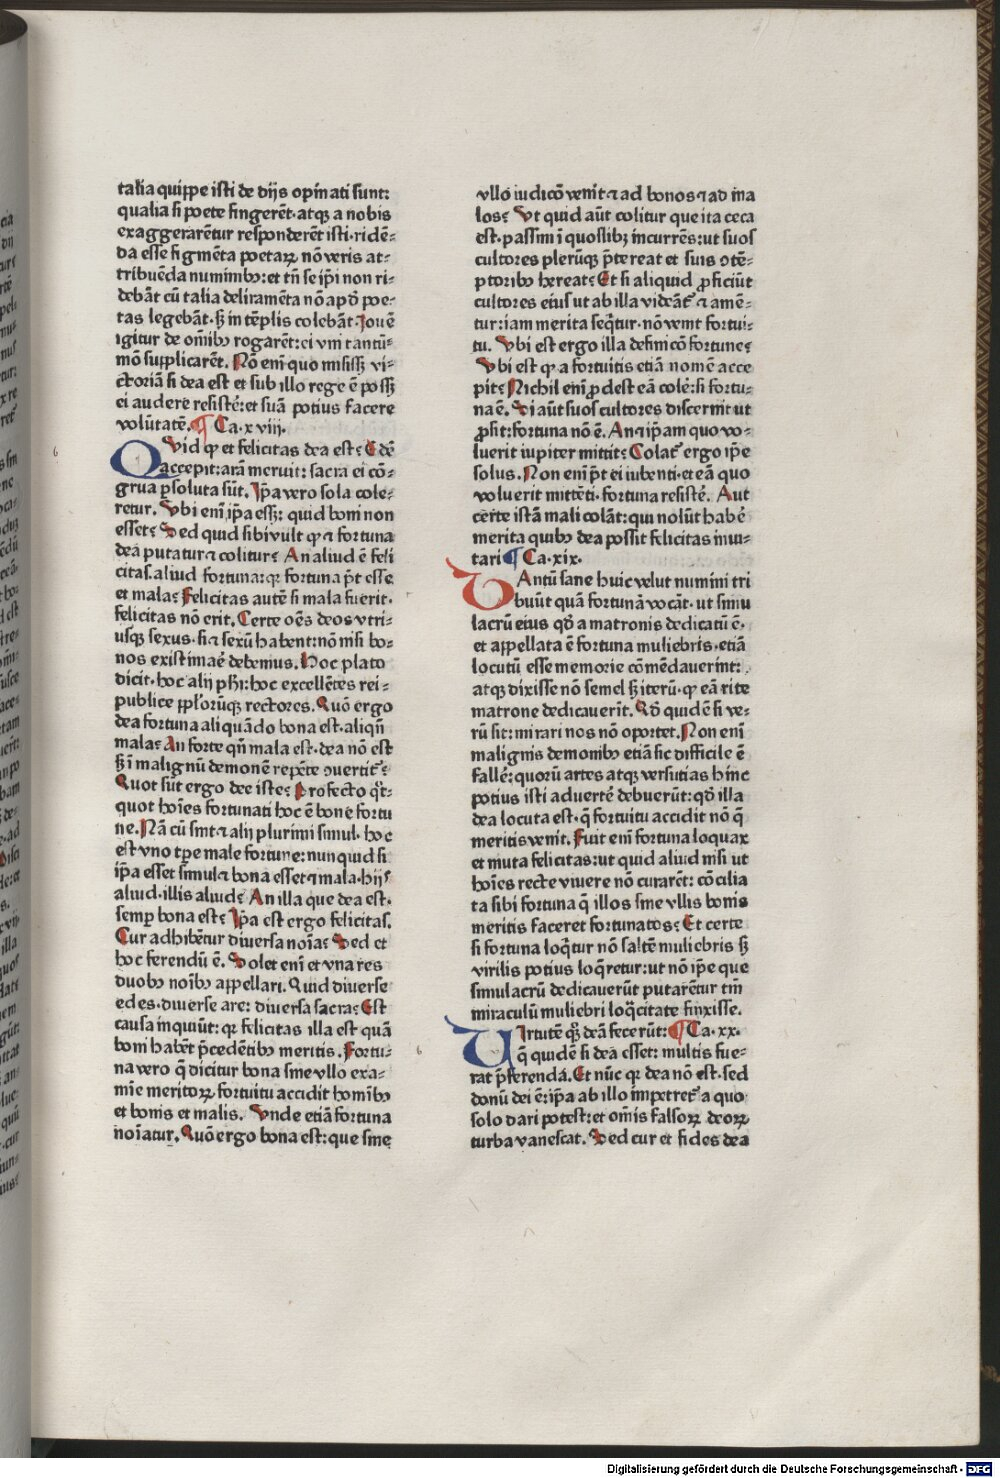 talia quippe isti de dijs opinati sunt:
qualia si poete fingerēt·atqꝫ a nobis
exaggerarētur responderēt isti·ridē⸗
da esse figmēta poetaꝝ nō veris at⸗
tribuēda numinibꝰ:et tn̄ se ip̄i non ri⸗
debāt cū talia deliramēta nō apd̓ poe⸗
tas legebāt·sꝫ in tēplis colebāt·Jouē
igitur de om̄ibꝰ rogarēt:ei vni tantū⸗
mō supplicarēt. Nō eni᷒ quo misissꝫ vi⸗
ctoriā si dea est et sub illo rege ē possꝫ
ei audere resistē:et suā potius facere
volūtatē. ¶ Ca·xviij·
QVid qꝫ et felicitas dea est? Edē
accepit:arā meruit: sacra ei cō⸗
grua ꝑsoluta sūt. Ip̄a vero sola cole⸗
retur. Vbi eni᷒ ip̄a essꝫ: quid boni non
esset? Sed quid sibi vult qꝫ ⁊ fortuna
dea putatur ⁊ colitur? An aliud ē feli
citas·aliud fortuna:qꝛ fortuna pt̄ esse
et mala? Felicitas autē si mala fuerit·
felicitas nō erit. Certe oēs deos vtri⸗
usqꝫ sexus·si ⁊ sexū habent:nō nisi bo⸗
nos existimaē debemus. Hoc plato
dicit·hoc alij ph̄i:hoc excellētes rei⸗
publice ppl̓orūqꝫ rectores. Quō ergo
dea fortuna aliquādo bona est·aliqn̄
mala? An forte qn̄ mala est·dea nō est
sꝫ ī malignū demonē repēte ꝯvertit᷒?
Quot sūt ergo dee iste? Profecto qͦt⸗
quot hoīes fortunati hoc ē bone fortu
ne. Nā cū sint ⁊ alij plurimi simul· hoc
est vno tp̄e male fortune:nunquid si
ip̄a esset simul ⁊ bona esset ⁊ mala·hijs
aliud·illis aliud? An illa que dea est·
semꝑ bona est? Ip̄a est ergo felicitas.
Cur adhibētur diuersa noīa? Sed et
hoc ferendū ē. Solet eni᷒ et vna res
duobꝰ noībꝰ appellari. Quid diuerse
edes·diuerse are: diuersa sacra? Est
causa inquiūt: qꝛ felicitas illa est quā
boni habēt p̄cedētibꝰ meritis. Fortu⸗
na vero q̄ dicitur bona sine vllo exa⸗
mīe meritoꝝ fortuitu accidit homībꝰ
et bonis et malis. Vnde etiā fortuna
noīatur. Quō ergo bona est:que sine
vllo iudicō venit ⁊ ad bonos ⁊ ad ma
los? Vt quid aūt colitur que ita ceca
est·passim ī quoslibꝫ incurrēs:ut suos
cultores plerūqꝫ p̄tereat et suis ꝯtē⸗
ptoribꝰ hereat? Et si aliquid ꝓficiūt
cultores eius ut ab illa videāt᷒ ⁊ amē⸗
tur:iam merita seqͥtur·nō venit fortui⸗
tu. Vbi est ergo illa definicō fortune?
Vbi est qꝫ a fortuitis etiā nomē acce
pit? Nichil eni᷒ ꝓdest eā colē:si fortu⸗
na ē. Si aūt suos cultores discernit ut
ꝓsit:fortuna nō ē. An ⁊ ip̄am quo vo⸗
luerit iupiter mittit? Colat᷒ ergo ip̄e
solus. Non eni᷒ pt̄ ei iubenti·et eā quo
voluerit mittēti·fortuna resistē. Aut
certe istā mali colāt:qui nolūt habē
merita quibꝰ dea possit felicitas inui⸗
tari ¶ Ca·xix·
TAntū sane huic velut numini tri
buūt quā fortunā vocāt·ut simu
lacrū eius qd̓ a matronis dedicatū ē·
et appellata ē fortuna muliebris·etiā
locutū esse memorie cōmēdauerint:
atqꝫ dixisse nō semel sꝫ iterū·qꝫ eā rite
matrone dedicauerīt. Qd̓ quidē si ve⸗
rū sit:mirari nos nō oportet. Non eni᷒
malignis demonibꝰ etiā sic difficile ē
fallē:quorū artes atqꝫ versutias hinc
potius isti advertē debuerūt:qd̓ illa
dea locuta est·q̄ fortuitu accidit nō q̄
meritis venit. Fuit eni᷒ fortuna loquax
et muta felicitas:ut quid aliud nisi ut
hoīes recte viuere nō curarēt: cōcilia
ta sibi fortuna q̄ illos sine vllis bonis
meritis faceret fortunatos? Et certe
si fortuna loqͥtur nō saltē muliebris sꝫ
virilis potius loqͤretur:ut nō ip̄e que
simulacrū dedicauerūt putarētur tm̄
miraculū muliebri loqͣcitate finxisse.
VIrtutē qͦqꝫ deā fecerūt: ¶ Ca·xx·
q̄ quidē si dea esset: multis fue⸗
rat p̄ferendā. Et nūc qꝛ dea nō est·sed
donū dei ē:ip̄a ab illo impetret᷒ a quo
solo dari potest:et om̄is falsoꝝ deoꝝ
turba vanescat. Sed cur et fides dea